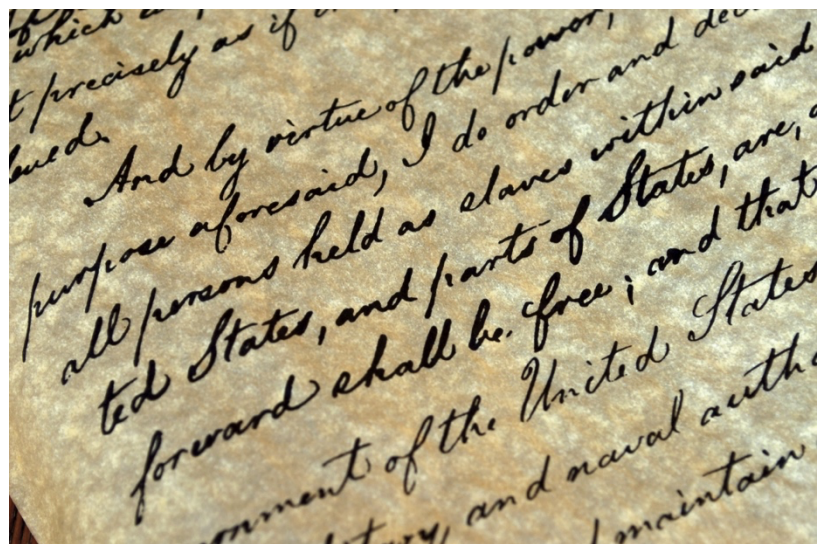 which
t precisely as if
loved.
And by virtue of the power,
purpose aforesaid, I do order and dec
all persons held as slaves within said
ted States, and parts of States, are, a
forward shall be free; and that
ernment of the United States
tary, and naval autho
maintain